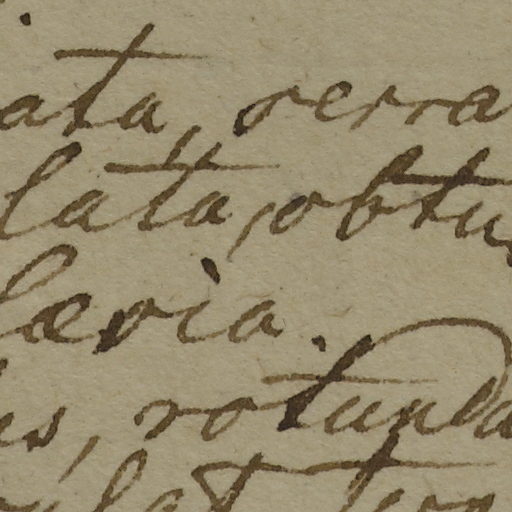 ata, serra
lata, obtu
lævia.
es, rotunda